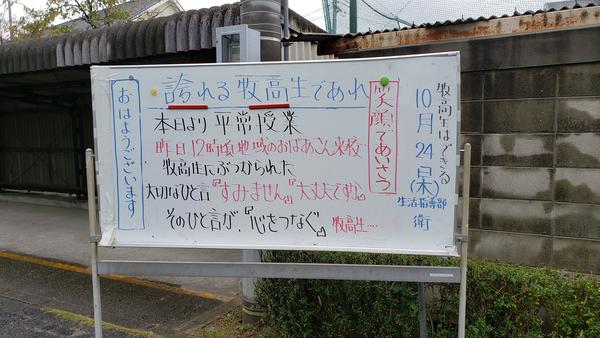 牧高生はできる
10月24日(木)
生活指導部
衛
笑顔であいさつ
誇れる牧高生であれ
本日より平常授業
昨日12時頃地域のおばあさん来校
牧高生にぶつかられた
大切なひと言『すみません』『大丈夫ですか』
そのひと言が、『心をつなぐ』牧高生…
おはようございます